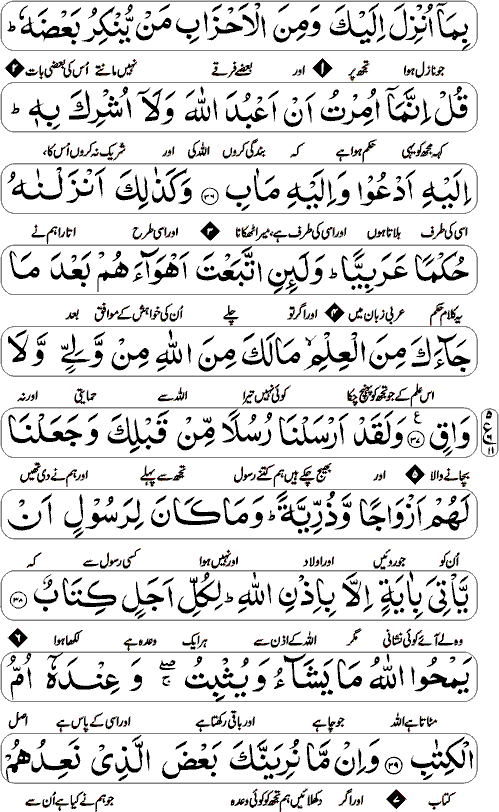 بِمَآ اُنْزِلَ اِلَيْكَ وَمِنَ الْاَحْزَابِ مَنْ يُّنْكِرُ بَعْضَهٗ ؕ
جو نازل ہوا تجھ پر ۱ اور بعضے فرقے نہیں مانتے اُس کی بعضی بات ۲
قُلْ اِنَّمَآ اُمِرْتُ اَنْ اَعْبُدَ اللّٰهَ وَلَآ اُشْرِكَ بِهٖ ؕ
کہہ مجھ کو یہی حکم ہوا ہے کہ بندگی کروں اللہ کی اور شریک نہ کروں اُس کا،
اِلَيْهِ اَدْعُوْا وَاِلَيْهِ مَاٰبِ ۳۶ وَكَذٰلِكَ اَنْزَلْنٰهُ
اسی کی طرف بلاتا ہوں اور اسی کی طرف ہے، میرا ٹھکانا ۳ اور اسی طرح اتارا ہم نے
حُكْمًا عَرَبِيًّا ؕ وَلَئِنِ اتَّبَعْتَ اَهْوَآءَهُمْ بَعْدَ مَا
یہ کلام حکم عربی زبان میں ۴ اور اگر تو چلے اُن کی خواہش کے موافق بعد
جَآءَكَ مِنَ الْعِلْمِ ۙ مَالَكَ مِنَ اللّٰهِ مِنْ وَّلِيٍّ وَّلَا
اس علم کے جو تجھ کو پہنچ چکا کوئی نہیں تیرا اللہ سے حمایتی اور نہ
وَاقٍ ۳۷ ع وَلَقَدْ اَرْسَلْنَا رُسُلًا مِّنْ قَبْلِكَ وَجَعَلْنَا
بچانے والا ۵ اور بھیج چکے ہیں ہم کتنے رسول تجھ سے پہلے اور ہم نے دی تھیں
لَهُمْ اَزْوَاجًا وَّذُرِّيَّةً ؕ وَمَا كَانَ لِرَسُوْلٍ اَنْ
اُن کو جوروئیں اور اولاد اور نہیں ہوا کسی رسول سے کہ
يَّاْتِيَ بِاٰيَةٍ اِلَّا بِاِذْنِ اللّٰهِ ؕ لِكُلِّ اَجَلٍ كِتَابٌ ۳۸
وہ لے آئے کوئی نشانی مگر اللہ کے اذن سے ہر ایک وعدہ ہے لکھا ہوا ۶
يَمْحُوا اللّٰهُ مَا يَشَآءُ وَيُثْبِتُ ۖۚ وَعِنْدَهٗٓ اُمُّ
مٹاتا ہے اللہ جو چاہے اور باقی رکھتا ہے اور اسی کے پاس ہے اصل
الْكِتٰبِ ۳۹ وَاِنْ مَّا نُرِيَنَّكَ بَعْضَ الَّذِيْ نَعِدُهُمْ
کتاب ۷ اور اگر دکھلائیں ہم تجھ کو کوئی وعدہ جو ہم نے کیا ہے اُن سے